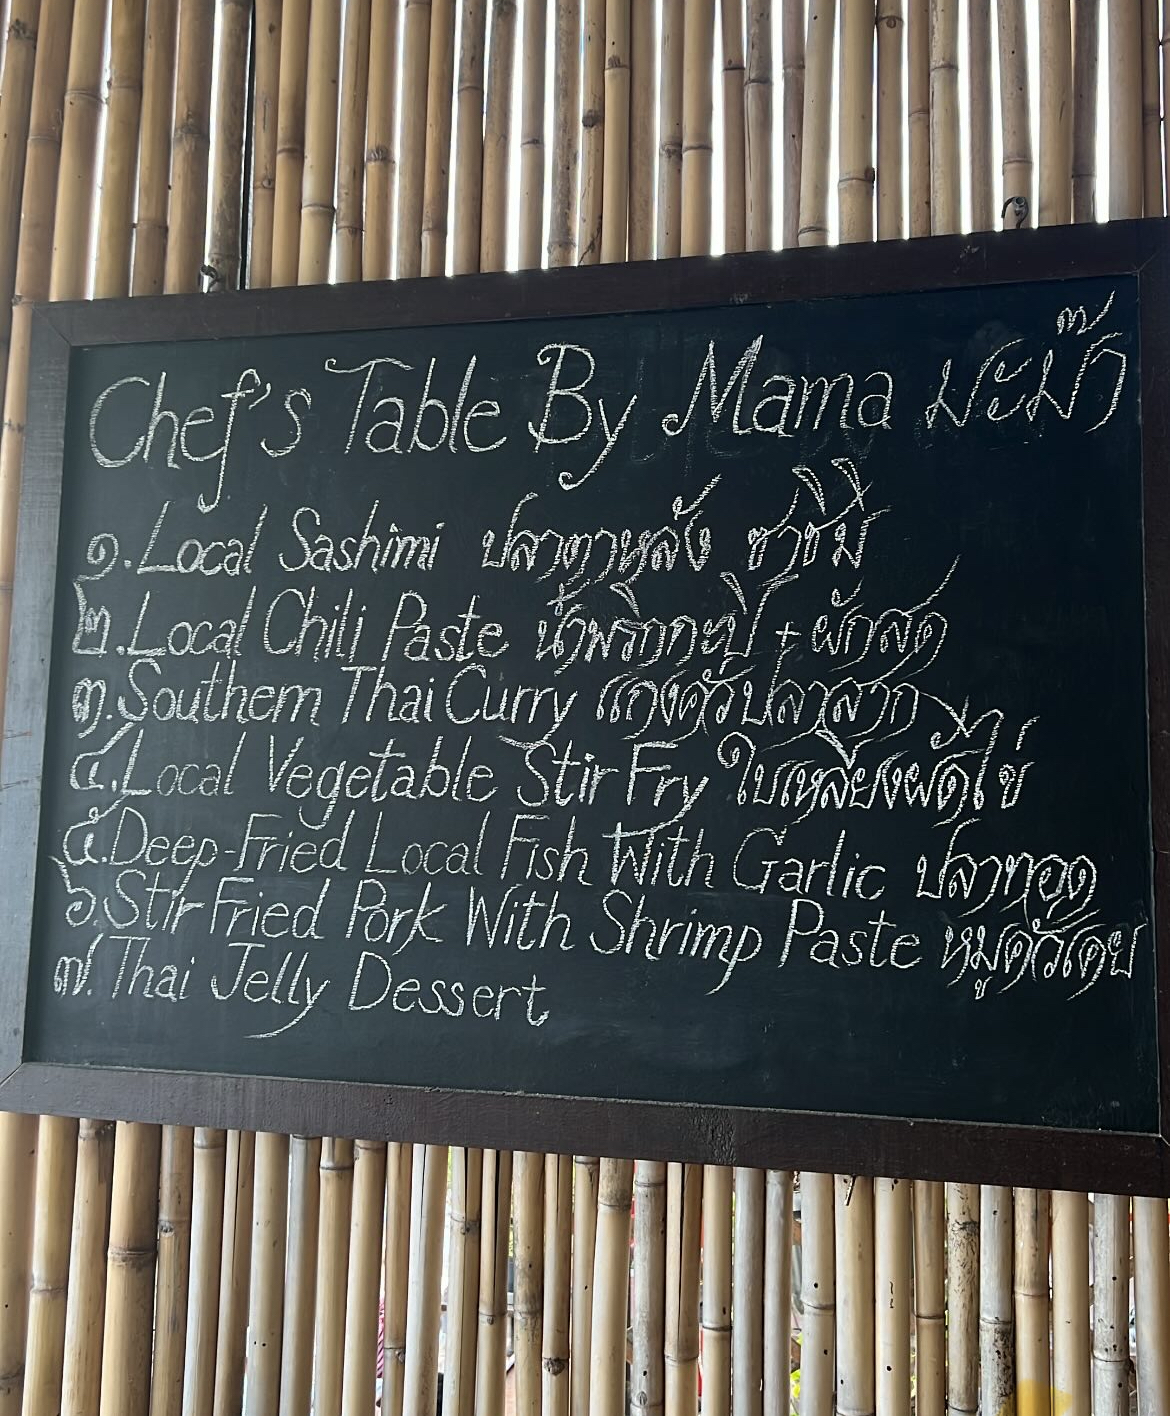 Chef's Table By Mama มะม๊า
๑. Local Sashimi ปลาตาหลัง ซาชิมิ
๒. Local Chili Paste น้ำพริกกะปิ + ผักสด
๓. Southern Thai Curry แกงคั่วปลาสาก
๔. Local Vegetable Stir Fry ใบเหลียงผัดไข่
๕. Deep-Fried Local Fish With Garlic ปลาทอด
๖. Stir Fried Pork With Shrimp Paste หมูคั่วเคย
๗. Thai Jelly Dessert